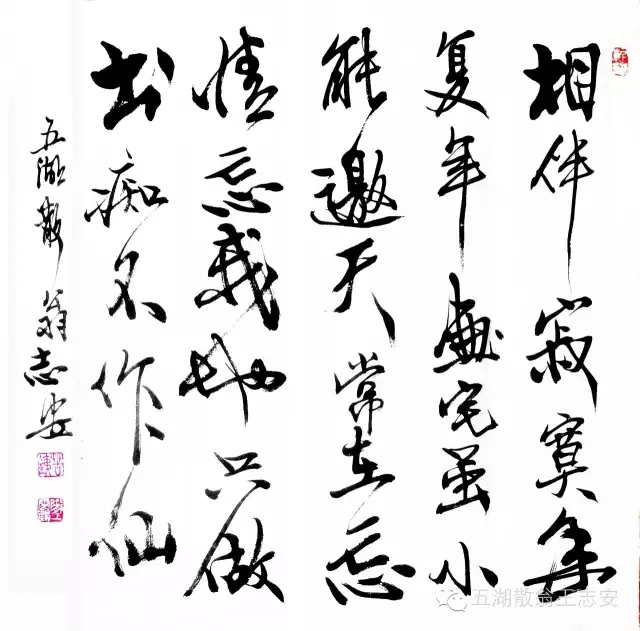 相伴寂寞年
复年畫宅虽小
能邀天常在忘
情忘我地只做
书痴不作仙
五湖散翁志安
五湖散翁王志安